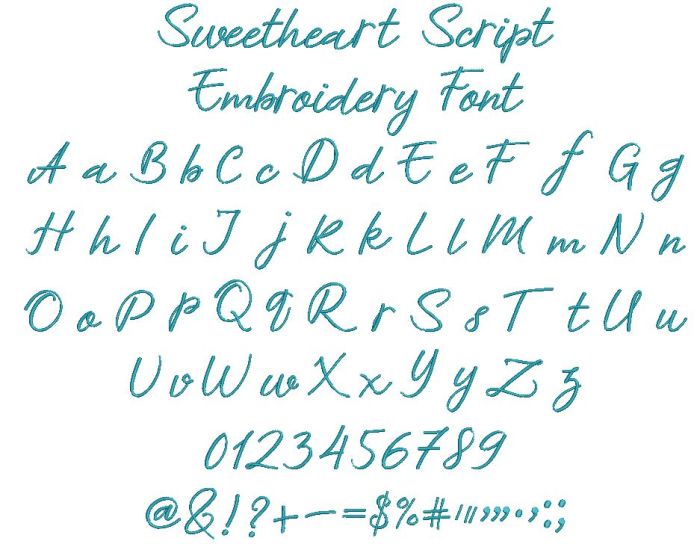 Sweetheart Script
Embroidery Font
A a B b C c D d E e F f G g
H h I i J j K k L l M m N n
O o P p Q q R r S s T t U u
V v W w X x Y y Z z
0123456789
@&!?+-=$%#